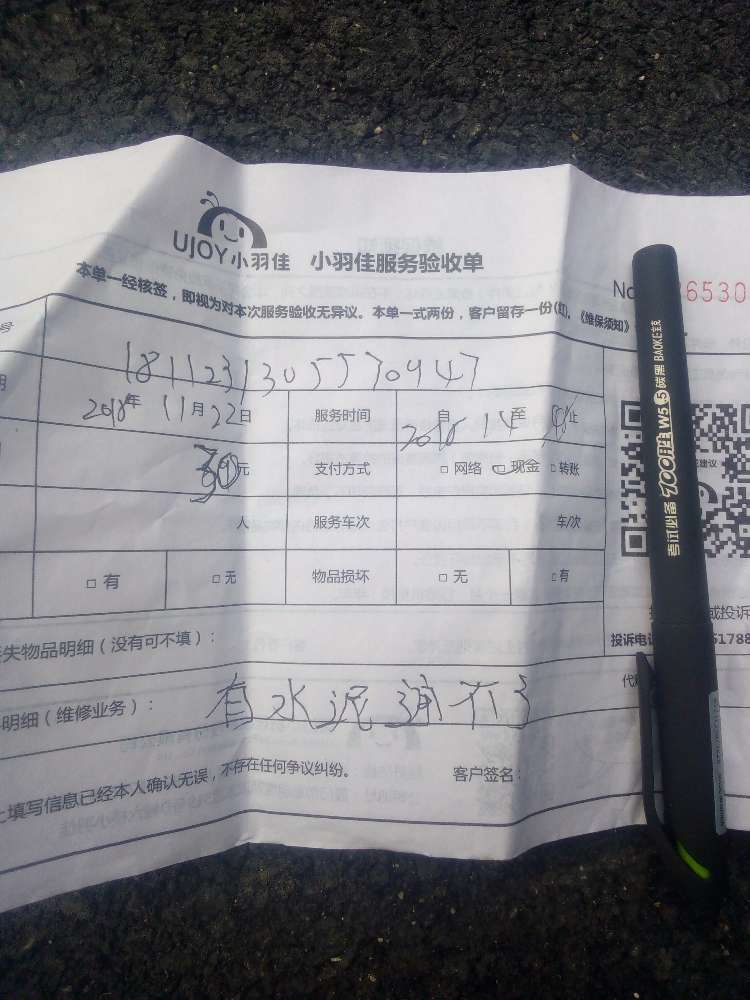 UJOY小羽佳 小羽佳服务验收单
本单一经核签，即视为对本次服务验收无异议。本单一式两份，客户留存一份(红)。《维保须知》
No 6530
号 18112313055570947
期 2018年11月22日 服务时间 自 2018 14 至 止
30元 支付方式 □ 网络 □ 现金 □ 转账
人 服务车次 车/次
□ 有 □ 无 物品损坏 □ 无 □ 有
失物品明细（没有可不填）：
建议
或投诉
投诉电 51788
明细（维修业务）： 有水泥通不了
代
上填写信息已经本人确认无误，不存在任何争议纠纷。 客户签名：
考试必备 700胜 W5 碳黑 BAOKE宝克